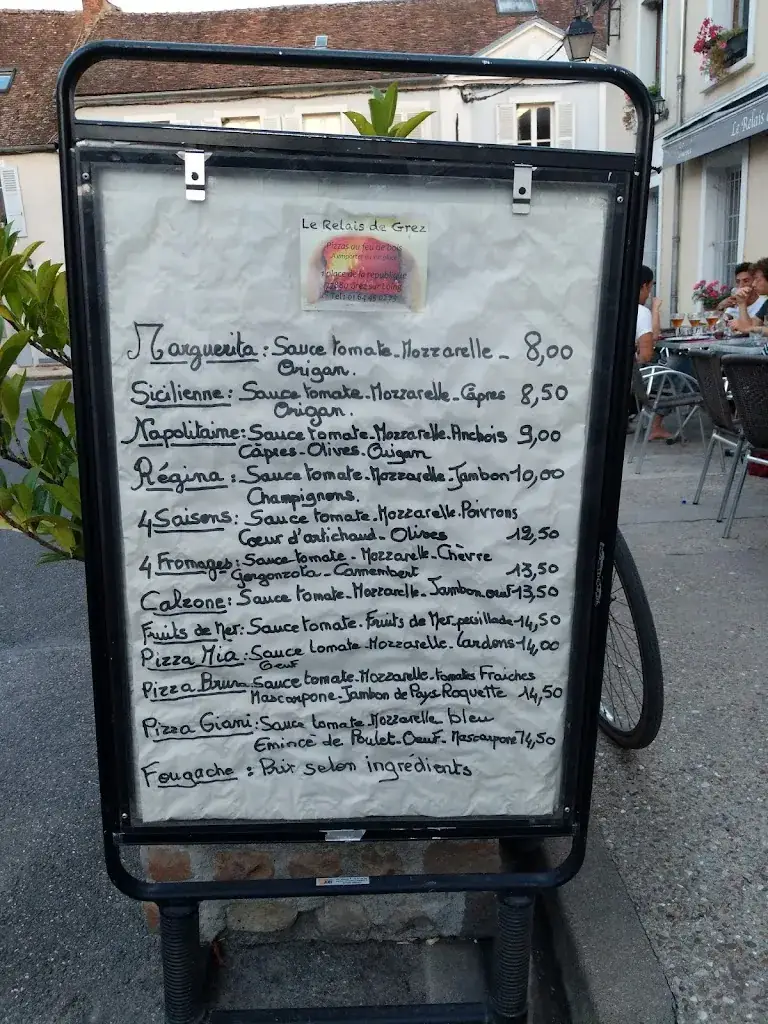 Le Relais de Grez
Pizzas au feu de bois
1 place de la république
77880 Grez sur Loing
Le Relais
Marguerita : Sauce tomate - Mozzarelle - 8,00
Origan.
Sicilienne : Sauce tomate - Mozzarelle - Câpres 8,50
Origan.
Napolitaine : Sauce tomate - Mozzarelle. Anchois 9,00
Câpres - Olives. Origan
Régina : Sauce tomate - Mozzarelle - Jambon 10,00
Champignons.
4 Saisons : Sauce tomate - Mozzarelle. Poivrons
Cœur d'artichaud - Olives 12,50
4 Fromages : Sauce tomate - Mozzarelle - Chèvre
Gorgonzola - Camembert 13,50
Calzone : Sauce tomate - Mozzarelle - Jambon œuf 13,50
Fruits de Mer : Sauce tomate. Fruits de Mer - persillade 14,50
Pizza Mia : Sauce tomate - Mozzarelle. Lardons 14,00
Oeuf
Pizza Bruna Sauce tomate - Mozzarelle - tomates Fraiches
Mascarpone - Jambon de Pays Roquette 14,50
Pizza Giani : Sauce tomate Mozzarelle bleu
Emincé de Poulet - Oeuf - Mascarpone 14,50
Fougache : Prix selon ingrédients